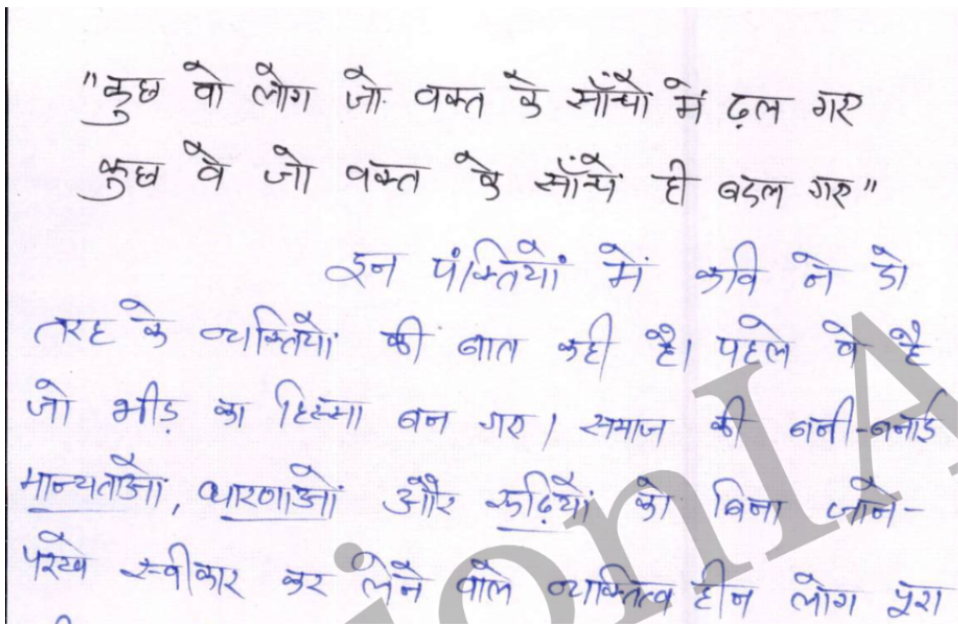 "कुछ वो लोग जो वक्त के साँचों में ढ़ल गए
कुछ वे जो वक्त के साँचे ही बदल गए"
इन पंक्तियों में कवि ने दो
तरह के व्यक्तियों की बात कही है। पहले वे है
जो भीड़ का हिस्सा बन गए। समाज की बनी-बनाई
मान्यताओं, धारणाओं और रूढ़ियों को बिना जाने-
परखे स्वीकार कर लेने वाले व्यक्तित्व हीन लोग पूरा